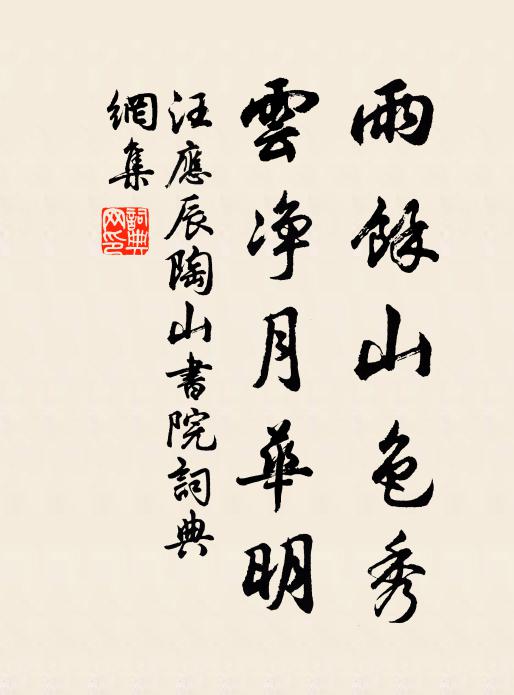 雨餘山色秀
雲净月華明
汪應辰陶山書院詞典
網集
詞典網印